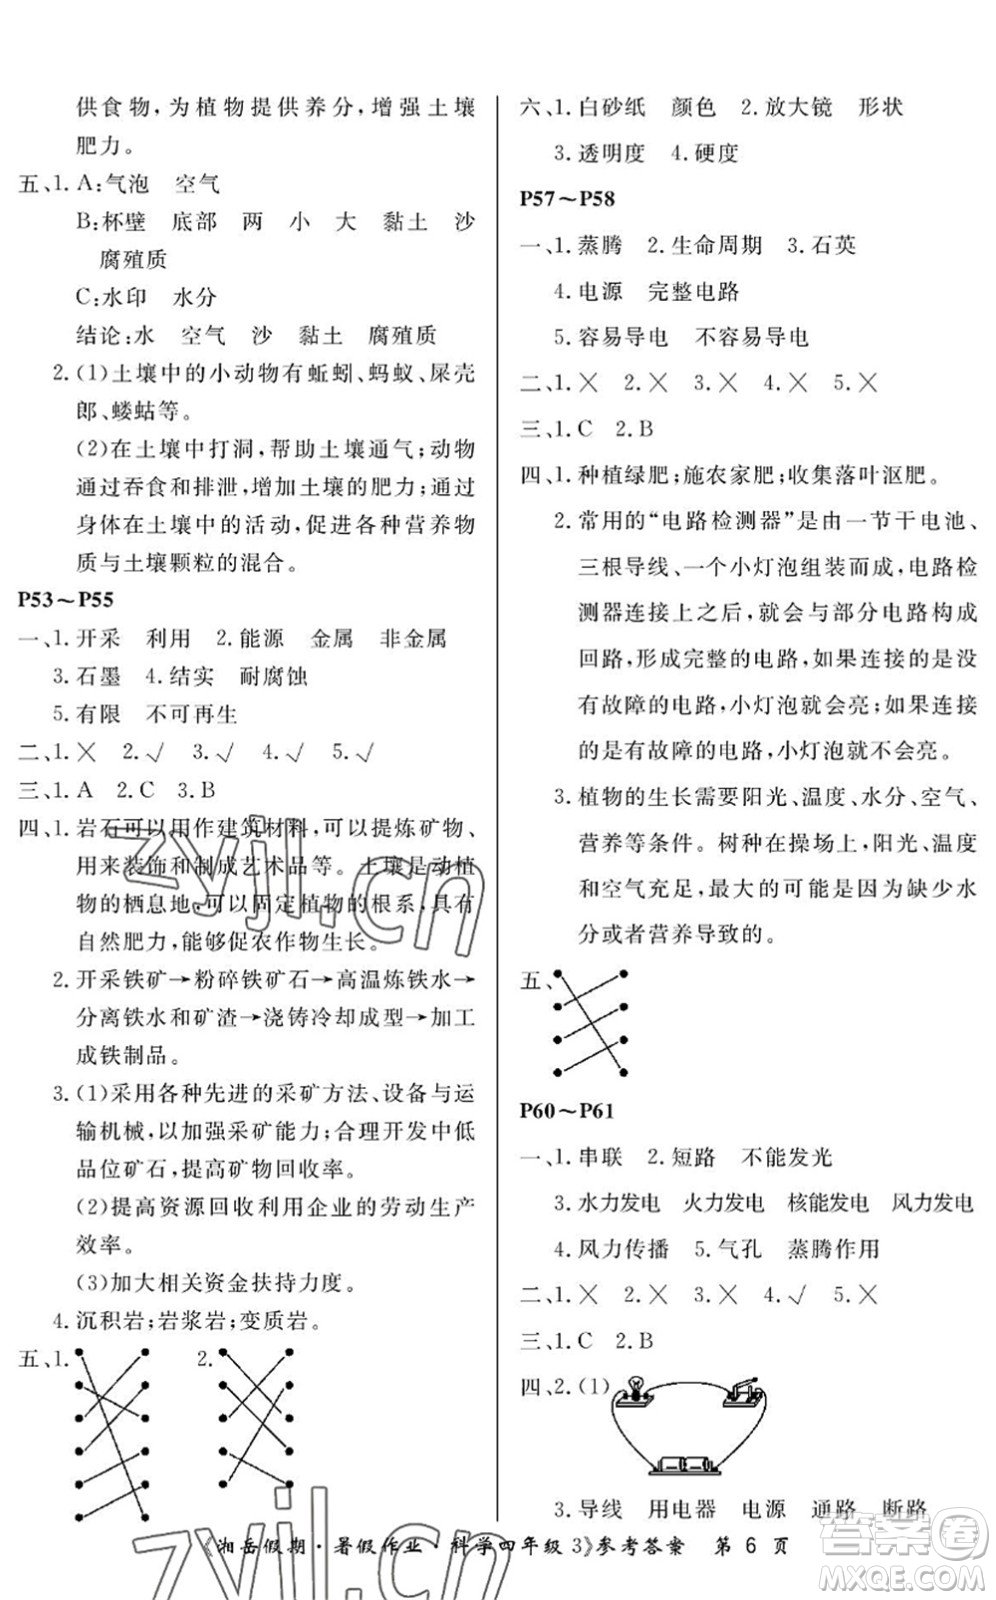 供食物，为植物提供养分，增强土壤
肥力。
五、1. A:气泡 空气
B:杯壁 底部 两 小 大 黏土 沙
腐殖质
C:水印 水分
结论:水 空气 沙 黏土 腐殖质
2. (1)土壤中的小动物有蚯蚓、蚂蚁、屎壳
郎、蝼蛄等。
(2)在土壤中打洞，帮助土壤通气；动物
通过吞食和排泄，增加土壤的肥力；通过
身体在土壤中的活动，促进各种营养物
质与土壤颗粒的混合。
P53～P55
一、1. 开采 利用 2. 能源 金属 非金属
3. 石墨 4. 结实 耐腐蚀
5. 有限 不可再生
二、1. ╳ 2. √ 3. √ 4. √ 5. √
三、1. A 2. C 3. B
四、1. 岩石可以用作建筑材料，可以提炼矿物、
用来装饰和制成艺术品等。土壤是动植
物的栖息地，可以固定植物的根系，具有
自然肥力，能够促农作物生长。
2. 开采铁矿→粉碎铁矿石→高温炼铁水→
分离铁水和矿渣→浇铸冷却成型→加工
成铁制品。
3. (1)采用各种先进的采矿方法、设备与运
输机械，以加强采矿能力；合理开发中低
品位矿石，提高矿物回收率。
(2)提高资源回收利用企业的劳动生产
效率。
(3)加大相关资金扶持力度。
4. 沉积岩；岩浆岩；变质岩。
五、1. 2.
六、1. 白砂纸 颜色 2. 放大镜 形状
3. 透明度 4. 硬度
P57～P58
一、1. 蒸腾 2. 生命周期 3. 石英
4. 电源 完整电路
5. 容易导电 不容易导电
二、1. ╳ 2. ╳ 3. ╳ 4. ╳ 5. ╳
三、1. C 2. B
四、1. 种植绿肥；施农家肥；收集落叶沤肥。
2. 常用的“电路检测器”是由一节干电池、
三根导线、一个小灯泡组装而成，电路检
测器连接上之后，就会与部分电路构成
回路，形成完整的电路，如果连接的是没
有故障的电路，小灯泡就会亮；如果连接
的是有故障的电路，小灯泡就不会亮。
3. 植物的生长需要阳光、温度、水分、空气、
营养等条件。树种在操场上，阳光、温度
和空气充足，最大的可能是因为缺少水
分或者营养导致的。
五、
P60～P61
一、1. 串联 2. 短路 不能发光
3. 水力发电 火力发电 核能发电 风力发电
4. 风力传播 5. 气孔 蒸腾作用
二、1. ╳ 2. ╳ 3. ╳ 4. √ 5. ╳
三、1. C 2. B
四、2. (1)
3. 导线 用电器 电源 通路 断路
《湘岳假期·暑假作业·科学四年级 3》参考答案 第 6 页
zyjl.cn
zyjl.cn
答案圈
MXQE.COM